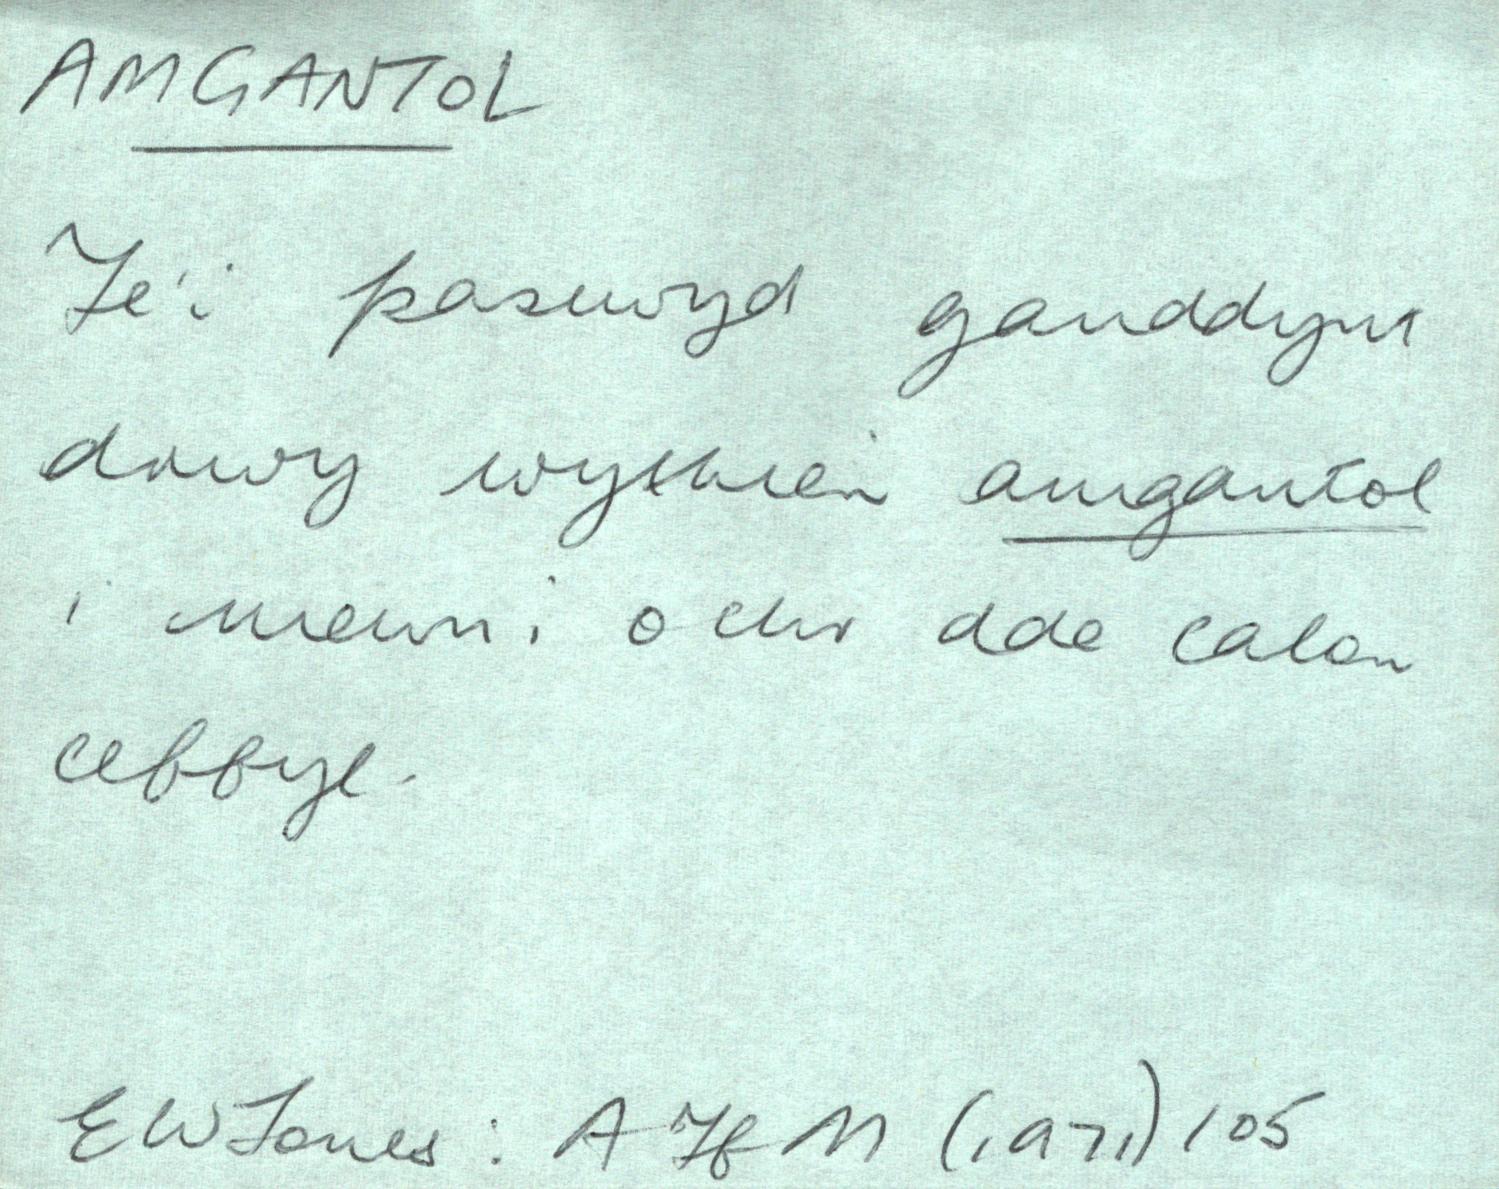 AMGANTOL
Fe'i pasiwyd ganddynt
drwy wythïen amgantol
i mewn i ochr dde calon
ceffyl.
E W Jones: A Ff M (1971) 105